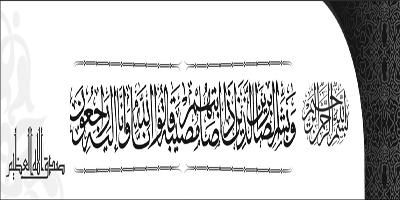 بسم الله الرحمن الرحيم
وبشر الصابرين الذين إذا أصابتهم مصيبة قالوا إنا لله وإنا إليه راجعون
صدق الله العظيم